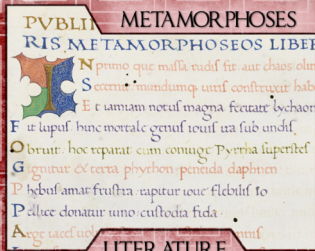 METAMORPHOSES
PVBLI
RIS METAMORPHOSEOS LIBER
N primo que massa rudis fit aut chaos olim
S ecernit mundumq; uiris construxit habi
E t iamiam notus magna feritate lychaon
F it lupus. hinc mortale genus iouis ira sub undis
O bruit. hoc reparat cum coniuge Pyrrha superstes
G ignitur ex terra phython. peneida daphnen
P hebus amat frustra. rapitur ioue flebilis Io
P ellice donatur uino custodia fida
A rge
LITERATURE